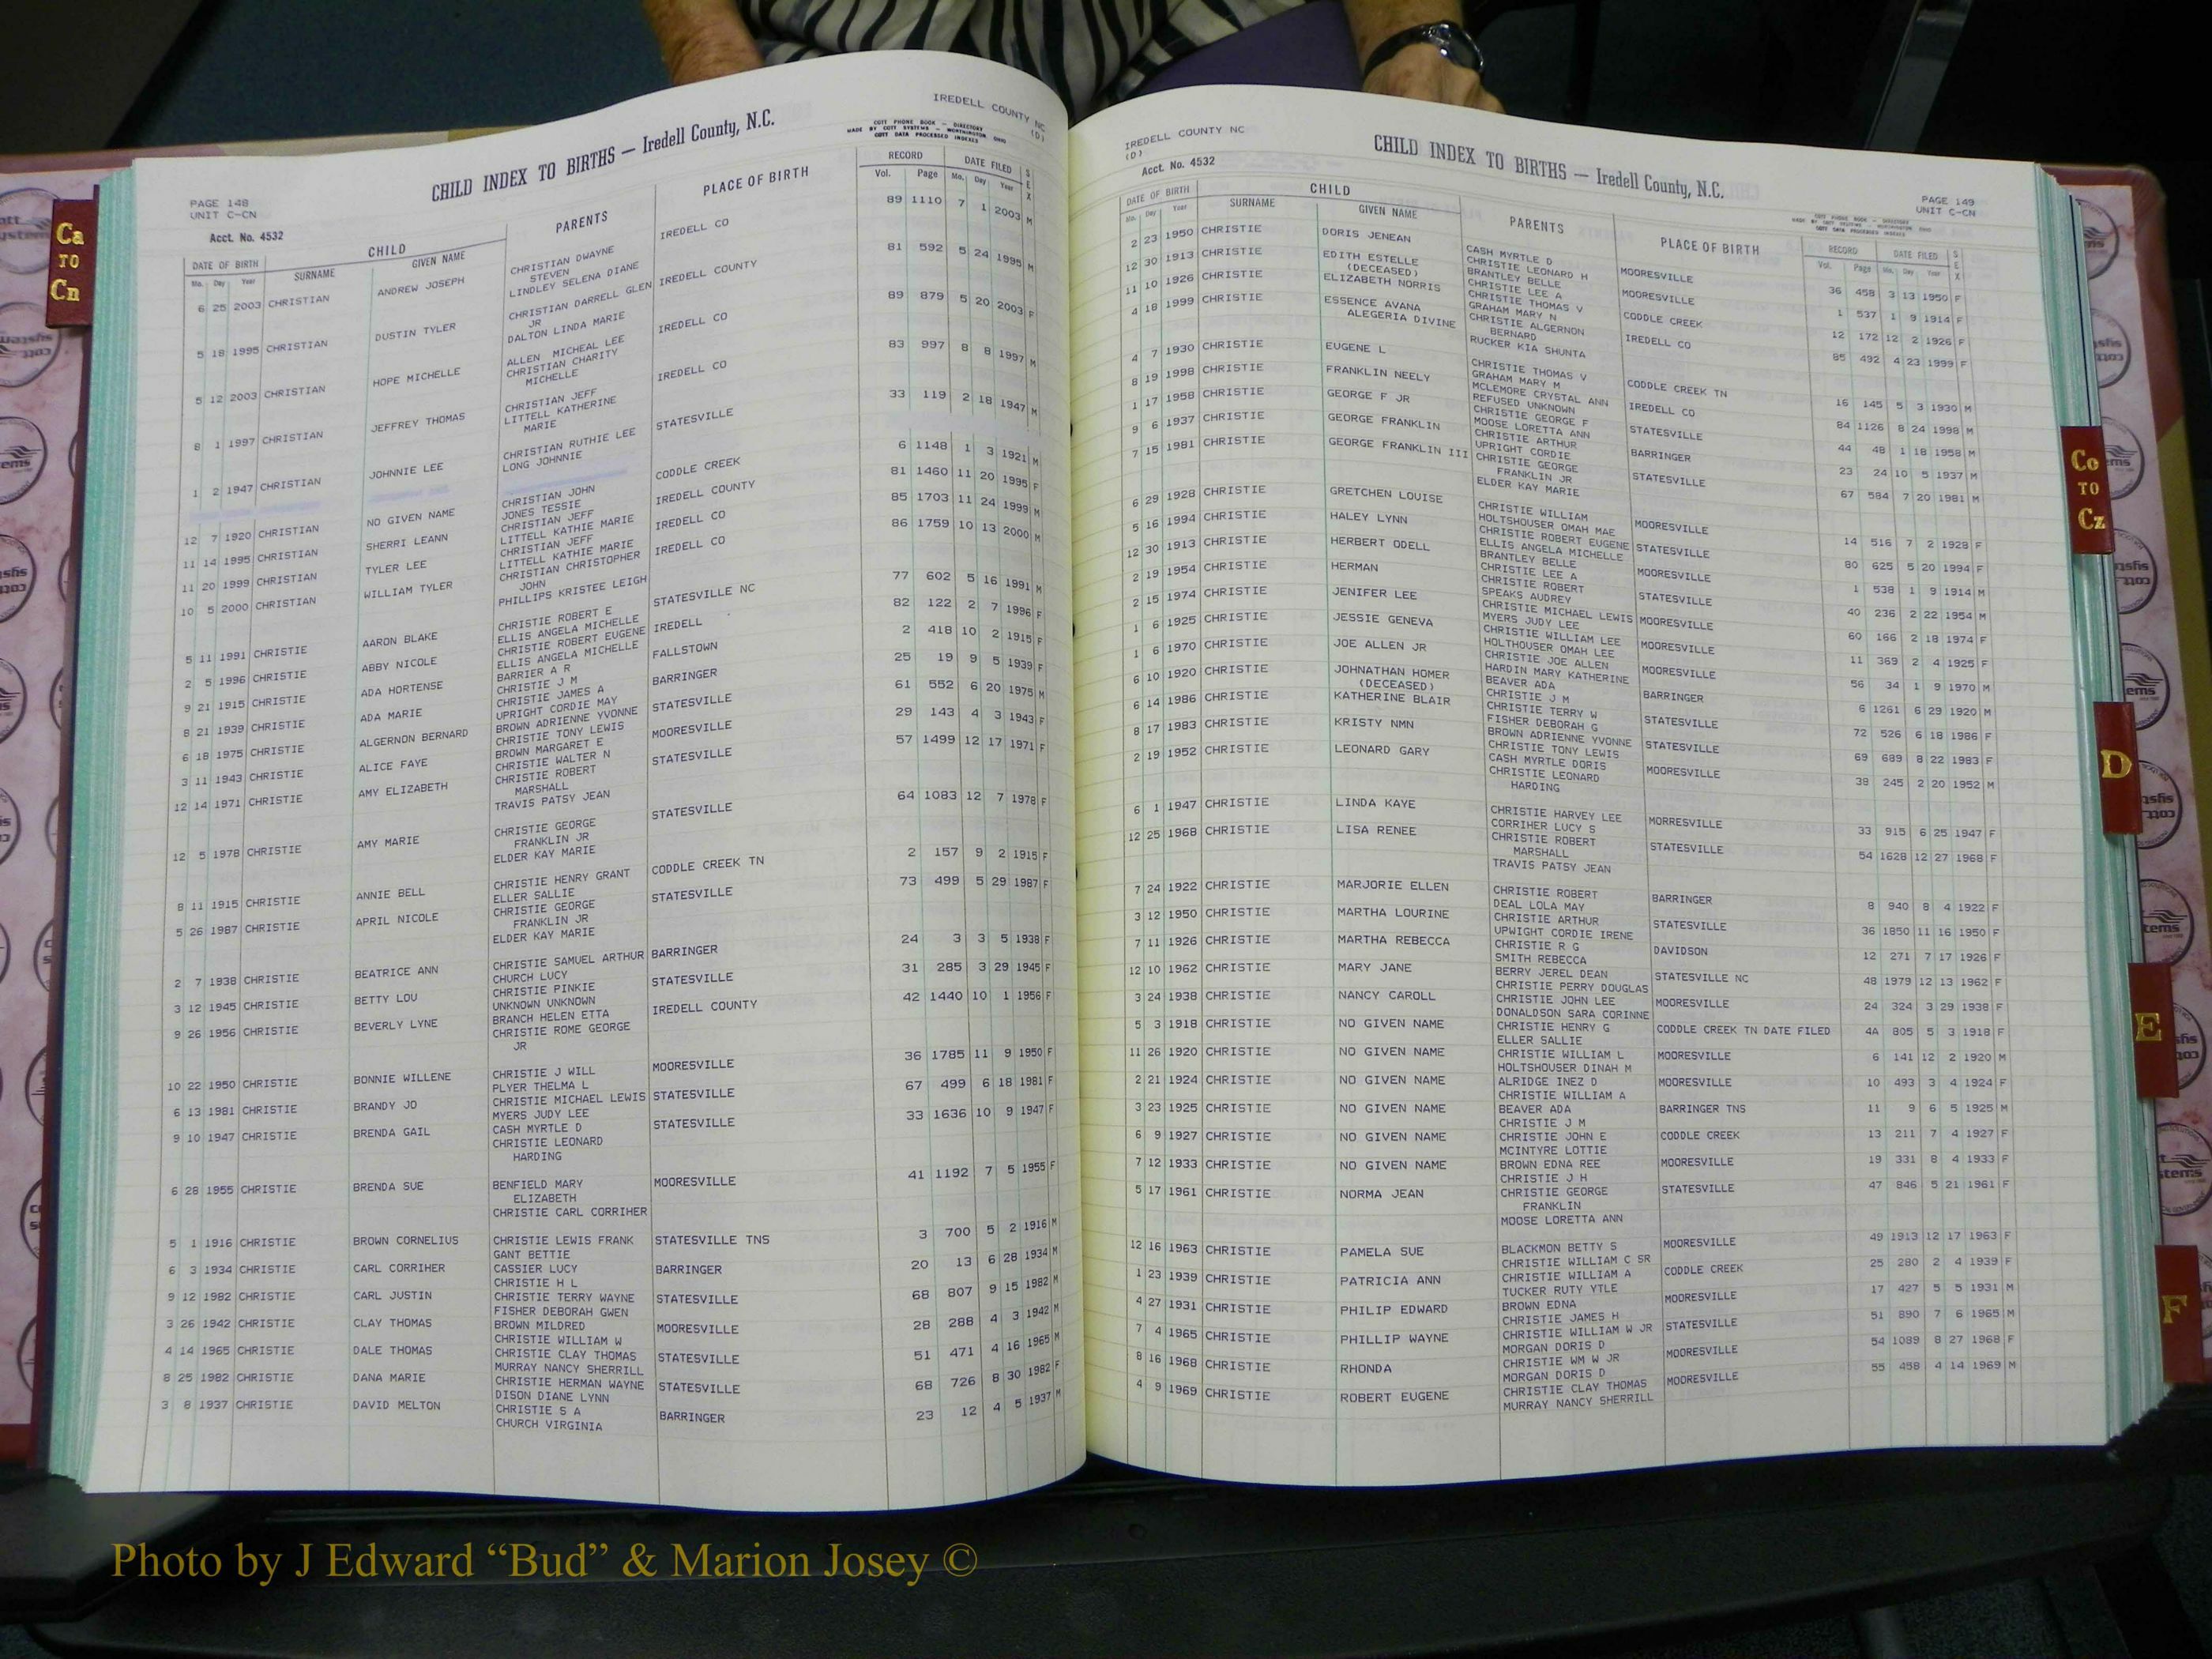 IREDELL COUNTY NC
(D)
CHILD INDEX TO BIRTHS — Iredell County, N.C.
COTT PHONE BOOK - DIRECTORY
MADE BY COTT SYSTEMS - WORTHINGTON OHIO
COTT DATA PROCESSED INDEXES
PAGE 148
UNIT C-CN
Acct. No. 4532
DATE OF BIRTH CHILD PARENTS PLACE OF BIRTH RECORD DATE FILED SEX
Mo. Day Year SURNAME GIVEN NAME Vol. Page Mo. Day Year
6 25 2003 CHRISTIAN ANDREW JOSEPH CHRISTIAN DWAYNE IREDELL CO 89 1110 7 1 2003 M
STEVEN
LINDLEY SELENA DIANE
5 18 1995 CHRISTIAN DUSTIN TYLER CHRISTIAN DARRELL GLEN IREDELL COUNTY 81 592 5 24 1995 M
JR
DALTON LINDA MARIE
5 12 2003 CHRISTIAN HOPE MICHELLE ALLEN MICHEAL LEE IREDELL CO 89 879 5 20 2003 F
CHRISTIAN CHARITY
MICHELLE
8 1 1997 CHRISTIAN JEFFREY THOMAS CHRISTIAN JEFF IREDELL CO 83 997 8 8 1997 M
LITTELL KATHERINE
MARIE
1 2 1947 CHRISTIAN JOHNNIE LEE CHRISTIAN RUTHIE LEE STATESVILLE 33 119 2 18 1947 M
LONG JOHNNIE
12 7 1920 CHRISTIAN NO GIVEN NAME CHRISTIAN JOHN CODDLE CREEK 6 1148 1 3 1921 M
JONES TESSIE
11 14 1995 CHRISTIAN SHERRI LEANN CHRISTIAN JEFF IREDELL COUNTY 81 1460 11 20 1995 F
LITTELL KATHIE MARIE
11 20 1999 CHRISTIAN TYLER LEE CHRISTIAN JEFF IREDELL CO 85 1703 11 24 1999 M
LITTELL KATHIE MARIE
10 5 2000 CHRISTIAN WILLIAM TYLER CHRISTIAN CHRISTOPHER IREDELL CO 86 1759 10 13 2000 M
JOHN
PHILLIPS KRISTEE LEIGH
5 11 1991 CHRISTIE AARON BLAKE CHRISTIE ROBERT E STATESVILLE NC 77 602 5 16 1991 M
ELLIS ANGELA MICHELLE
2 5 1996 CHRISTIE ABBY NICOLE CHRISTIE ROBERT EUGENE IREDELL 82 122 2 7 1996 F
ELLIS ANGELA MICHELLE
9 21 1915 CHRISTIE ADA HORTENSE BARRIER A R FALLSTOWN 2 418 10 2 1915 F
CHRISTIE J M
8 21 1939 CHRISTIE ADA MARIE CHRISTIE JAMES A BARRINGER 25 19 9 5 1939 F
UPRIGHT CORDIE MAY
6 18 1975 CHRISTIE ALGERNON BERNARD BROWN ADRIENNE YVONNE STATESVILLE 61 552 6 20 1975 M
CHRISTIE TONY LEWIS
3 11 1943 CHRISTIE ALICE FAYE BROWN MARGARET E MOORESVILLE 29 143 4 3 1943 F
CHRISTIE WALTER N
12 14 1971 CHRISTIE AMY ELIZABETH CHRISTIE ROBERT STATESVILLE 57 1499 12 17 1971 F
MARSHALL
TRAVIS PATSY JEAN
12 5 1978 CHRISTIE AMY MARIE CHRISTIE GEORGE STATESVILLE 64 1083 12 7 1978 F
FRANKLIN JR
ELDER KAY MARIE
8 11 1915 CHRISTIE ANNIE BELL CHRISTIE HENRY GRANT CODDLE CREEK TN 2 157 9 2 1915 F
ELLER SALLIE
5 26 1987 CHRISTIE APRIL NICOLE CHRISTIE GEORGE STATESVILLE 73 499 5 29 1987 F
FRANKLIN JR
ELDER KAY MARIE
2 7 1938 CHRISTIE BEATRICE ANN CHRISTIE SAMUEL ARTHUR BARRINGER 24 3 3 5 1938 F
CHURCH LUCY
3 12 1945 CHRISTIE BETTY LOU CHRISTIE PINKIE STATESVILLE 31 285 3 29 1945 F
UNKNOWN UNKNOWN
9 26 1956 CHRISTIE BEVERLY LYNE BRANCH HELEN ETTA IREDELL COUNTY 42 1440 10 1 1956 F
CHRISTIE ROME GEORGE
JR
10 22 1950 CHRISTIE BONNIE WILLENE CHRISTIE J WILL MOORESVILLE 36 1785 11 9 1950 F
PLYER THELMA L
6 13 1981 CHRISTIE BRANDY JO CHRISTIE MICHAEL LEWIS STATESVILLE 67 499 6 18 1981 F
MYERS JUDY LEE
9 10 1947 CHRISTIE BRENDA GAIL CASH MYRTLE D STATESVILLE 33 1636 10 9 1947 F
CHRISTIE LEONARD
HARDING
6 28 1955 CHRISTIE BRENDA SUE BENFIELD MARY MOORESVILLE 41 1192 7 5 1955 F
ELIZABETH
CHRISTIE CARL CORRIHER
5 1 1916 CHRISTIE BROWN CORNELIUS CHRISTIE LEWIS FRANK STATESVILLE TNS 3 700 5 2 1916 M
GANT BETTIE
6 3 1934 CHRISTIE CARL CORRIHER CASSIER LUCY BARRINGER 20 13 6 28 1934 M
CHRISTIE H L
9 12 1982 CHRISTIE CARL JUSTIN CHRISTIE TERRY WAYNE STATESVILLE 68 807 9 15 1982 M
FISHER DEBORAH GWEN
3 26 1942 CHRISTIE CLAY THOMAS BROWN MILDRED MOORESVILLE 28 288 4 3 1942 M
CHRISTIE WILLIAM W
4 14 1965 CHRISTIE DALE THOMAS CHRISTIE CLAY THOMAS STATESVILLE 51 471 4 16 1965 M
MURRAY NANCY SHERRILL
8 25 1982 CHRISTIE DANA MARIE CHRISTIE HERMAN WAYNE STATESVILLE 68 726 8 30 1982 F
DISON DIANE LYNN
3 8 1937 CHRISTIE DAVID MELTON CHRISTIE S A BARRINGER 23 12 4 5 1937 M
CHURCH VIRGINIA
IREDELL COUNTY NC
(D)
Acct. No. 4532
CHILD INDEX TO BIRTHS — Iredell County, N.C.
PAGE 149
UNIT C-CN
COTT PHONE BOOK - DIRECTORY
MADE BY COTT SYSTEMS - WORTHINGTON OHIO
COTT DATA PROCESSED INDEXES
DATE OF BIRTH CHILD PARENTS PLACE OF BIRTH RECORD DATE FILED SEX
Mo. Day Year SURNAME GIVEN NAME Vol. Page Mo. Day Year
2 23 1950 CHRISTIE DORIS JENEAN CASH MYRTLE D MOORESVILLE 36 458 3 13 1950 F
CHRISTIE LEONARD H
12 30 1913 CHRISTIE EDITH ESTELLE BRANTLEY BELLE MOORESVILLE 1 537 1 9 1914 F
(DECEASED) CHRISTIE LEE A
11 10 1926 CHRISTIE ELIZABETH NORRIS CHRISTIE THOMAS V CODDLE CREEK 12 172 12 2 1926 F
GRAHAM MARY N
4 18 1999 CHRISTIE ESSENCE AVANA CHRISTIE ALGERNON IREDELL CO 85 492 4 23 1999 F
ALEGERIA DIVINE BERNARD
RUCKER KIA SHUNTA
4 7 1930 CHRISTIE EUGENE L CHRISTIE THOMAS V CODDLE CREEK TN 16 145 5 3 1930 M
GRAHAM MARY M
8 19 1998 CHRISTIE FRANKLIN NEELY MCLEMORE CRYSTAL ANN IREDELL CO 84 1126 8 24 1998 M
REFUSED UNKNOWN
1 17 1958 CHRISTIE GEORGE F JR CHRISTIE GEORGE F STATESVILLE 44 48 1 18 1958 M
MOOSE LORETTA ANN
9 6 1937 CHRISTIE GEORGE FRANKLIN CHRISTIE ARTHUR BARRINGER 23 24 10 5 1937 M
UPRIGHT CORDIE
7 15 1981 CHRISTIE GEORGE FRANKLIN III CHRISTIE GEORGE STATESVILLE 67 584 7 20 1981 M
FRANKLIN JR
ELDER KAY MARIE
6 29 1928 CHRISTIE GRETCHEN LOUISE CHRISTIE WILLIAM MOORESVILLE 14 516 7 2 1928 F
HOLTSHOUSER OMAH MAE
5 16 1994 CHRISTIE HALEY LYNN CHRISTIE ROBERT EUGENE STATESVILLE 80 625 5 20 1994 F
ELLIS ANGELA MICHELLE
12 30 1913 CHRISTIE HERBERT ODELL BRANTLEY BELLE MOORESVILLE 1 538 1 9 1914 M
CHRISTIE LEE A
2 19 1954 CHRISTIE HERMAN CHRISTIE ROBERT STATESVILLE 40 236 2 22 1954 M
SPEAKS AUDREY
2 15 1974 CHRISTIE JENIFER LEE CHRISTIE MICHAEL LEWIS MOORESVILLE 60 166 2 18 1974 F
MYERS JUDY LEE
1 6 1925 CHRISTIE JESSIE GENEVA CHRISTIE WILLIAM LEE MOORESVILLE 11 369 2 4 1925 F
HOLTHOUSER OMAH LEE
1 6 1970 CHRISTIE JOE ALLEN JR CHRISTIE JOE ALLEN MOORESVILLE 56 34 1 9 1970 M
HARDIN MARY KATHERINE
6 10 1920 CHRISTIE JOHNATHAN HOMER BEAVER ADA BARRINGER 6 1261 6 29 1920 M
(DECEASED) CHRISTIE J M
6 14 1986 CHRISTIE KATHERINE BLAIR CHRISTIE TERRY W STATESVILLE 72 526 6 18 1986 F
FISHER DEBORAH G
8 17 1983 CHRISTIE KRISTY NMN BROWN ADRIENNE YVONNE STATESVILLE 69 689 8 22 1983 F
CHRISTIE TONY LEWIS
2 19 1952 CHRISTIE LEONARD GARY CASH MYRTLE DORIS MOORESVILLE 38 245 2 20 1952 M
CHRISTIE LEONARD
HARDING
6 1 1947 CHRISTIE LINDA KAYE CHRISTIE HARVEY LEE MORRESVILLE 33 915 6 25 1947 F
CORRIHER LUCY S
12 25 1968 CHRISTIE LISA RENEE CHRISTIE ROBERT STATESVILLE 54 1628 12 27 1968 F
MARSHALL
TRAVIS PATSY JEAN
7 24 1922 CHRISTIE MARJORIE ELLEN CHRISTIE ROBERT BARRINGER 8 940 8 4 1922 F
DEAL LOLA MAY
3 12 1950 CHRISTIE MARTHA LOURINE CHRISTIE ARTHUR STATESVILLE 36 1850 11 16 1950 F
UPWIGHT CORDIE IRENE
7 11 1926 CHRISTIE MARTHA REBECCA CHRISTIE R G DAVIDSON 12 271 7 17 1926 F
SMITH REBECCA
12 10 1962 CHRISTIE MARY JANE BERRY JEREL DEAN STATESVILLE NC 48 1979 12 13 1962 F
CHRISTIE PERRY DOUGLAS
3 24 1938 CHRISTIE NANCY CAROLL CHRISTIE JOHN LEE MOORESVILLE 24 324 3 29 1938 F
DONALDSON SARA CORINNE
5 3 1918 CHRISTIE NO GIVEN NAME CHRISTIE HENRY G CODDLE CREEK TN DATE FILED 4A 805 5 3 1918 F
ELLER SALLIE
11 26 1920 CHRISTIE NO GIVEN NAME CHRISTIE WILLIAM L MOORESVILLE 6 141 12 2 1920 M
HOLTSHOUSER DINAH M
2 21 1924 CHRISTIE NO GIVEN NAME ALRIDGE INEZ D MOORESVILLE 10 493 3 4 1924 F
CHRISTIE WILLIAM A
3 23 1925 CHRISTIE NO GIVEN NAME BEAVER ADA BARRINGER TNS 11 9 6 5 1925 M
CHRISTIE J M
6 9 1927 CHRISTIE NO GIVEN NAME CHRISTIE JOHN E CODDLE CREEK 13 211 7 4 1927 F
MCINTYRE LOTTIE
7 12 1933 CHRISTIE NO GIVEN NAME BROWN EDNA REE MOORESVILLE 19 331 8 4 1933 F
CHRISTIE J H
5 17 1961 CHRISTIE NORMA JEAN CHRISTIE GEORGE STATESVILLE 47 846 5 21 1961 F
FRANKLIN
MOOSE LORETTA ANN
12 16 1963 CHRISTIE PAMELA SUE BLACKMON BETTY S MOORESVILLE 49 1913 12 17 1963 F
CHRISTIE WILLIAM C SR
1 23 1939 CHRISTIE PATRICIA ANN CHRISTIE WILLIAM A CODDLE CREEK 25 280 2 4 1939 F
TUCKER RUTY YTLE
4 27 1931 CHRISTIE PHILIP EDWARD BROWN EDNA MOORESVILLE 17 427 5 5 1931 M
CHRISTIE JAMES H
7 4 1965 CHRISTIE PHILLIP WAYNE CHRISTIE WILLIAM W JR STATESVILLE 51 890 7 6 1965 M
MORGAN DORIS D
8 16 1968 CHRISTIE RHONDA CHRISTIE WM W JR MOORESVILLE 54 1089 8 27 1968 F
MORGAN DORIS D
4 9 1969 CHRISTIE ROBERT EUGENE CHRISTIE CLAY THOMAS MOORESVILLE 55 458 4 14 1969 M
MURRAY NANCY SHERRILL
Ca
TO
Cn
Co
TO
Cz
D
E
F
Photo by J Edward “Bud” & Marion Josey ©